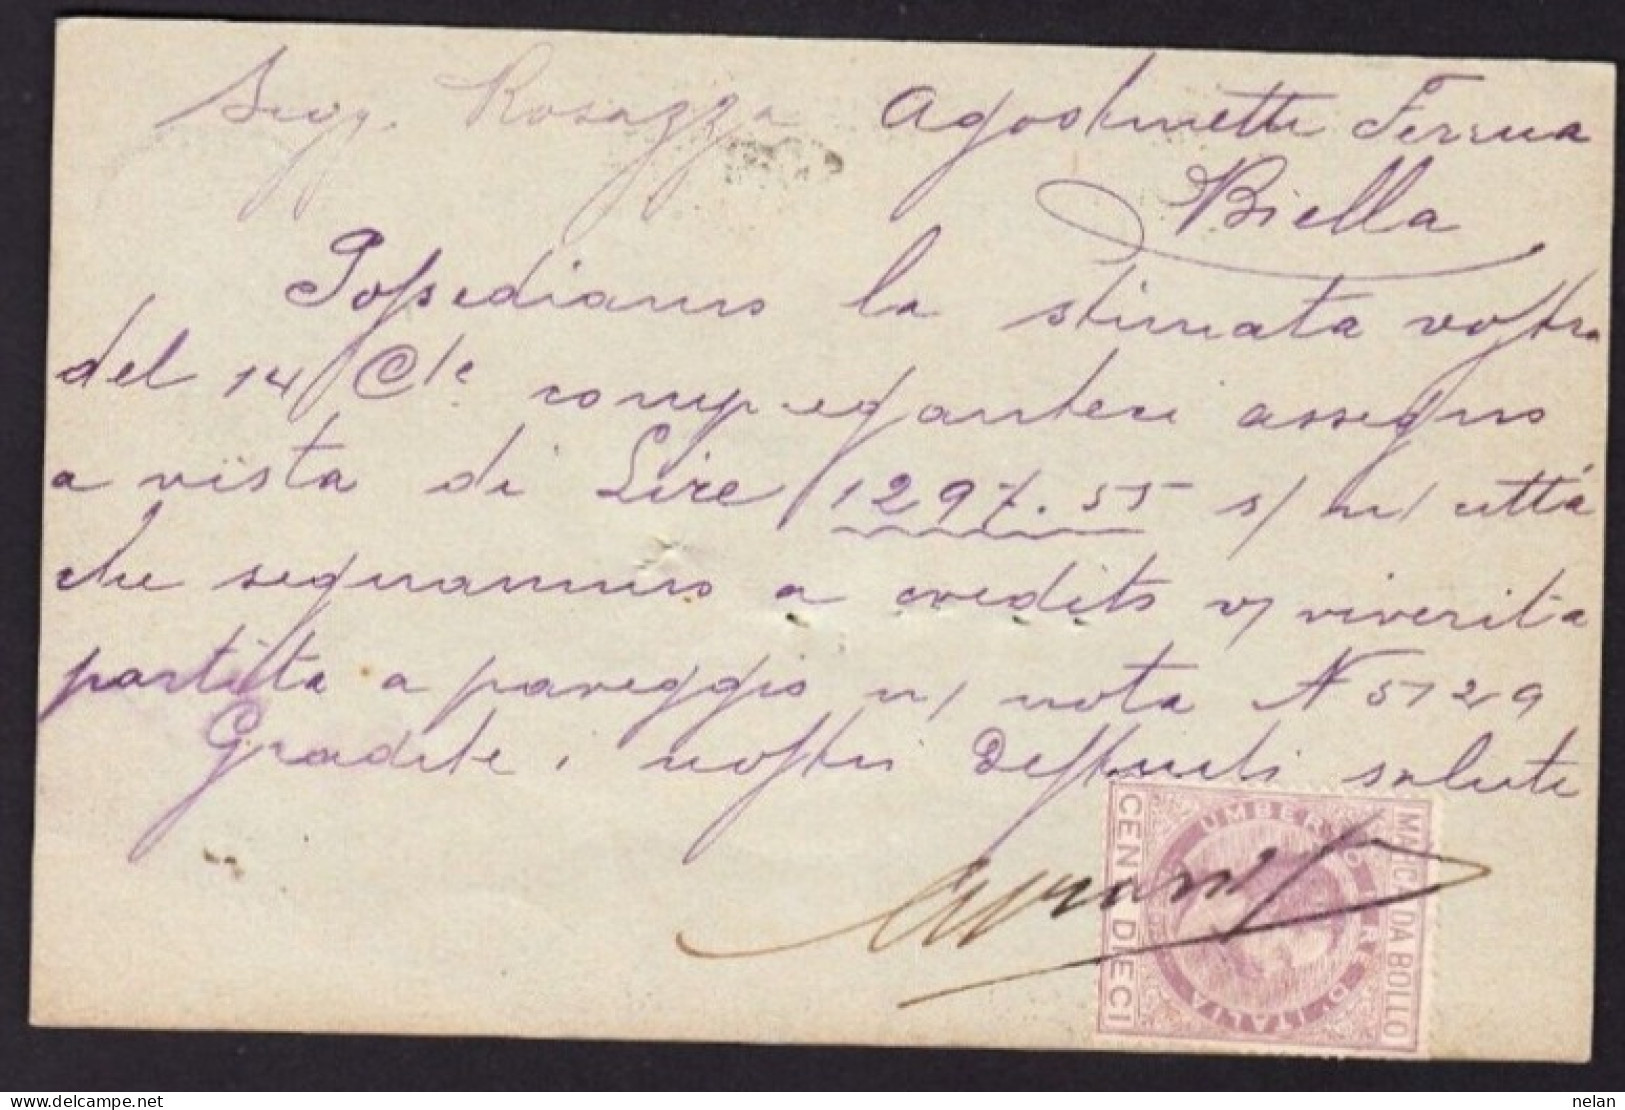 Sigg. Rosazza Agostinetti Ferrua
Biella
Possediamo la stimata vostra
del 14 Cte compieganteci assegno
a vista di Lire 1297.55 s/ n/ città
che segnammo a credito v/ riverita
partita a pareggio n/ nota N 5129
Gradite i nostri Distinti saluti
MARCA DA BOLLO
UMBERTO I RE D'ITALIA
CENT. DIECI
nelan